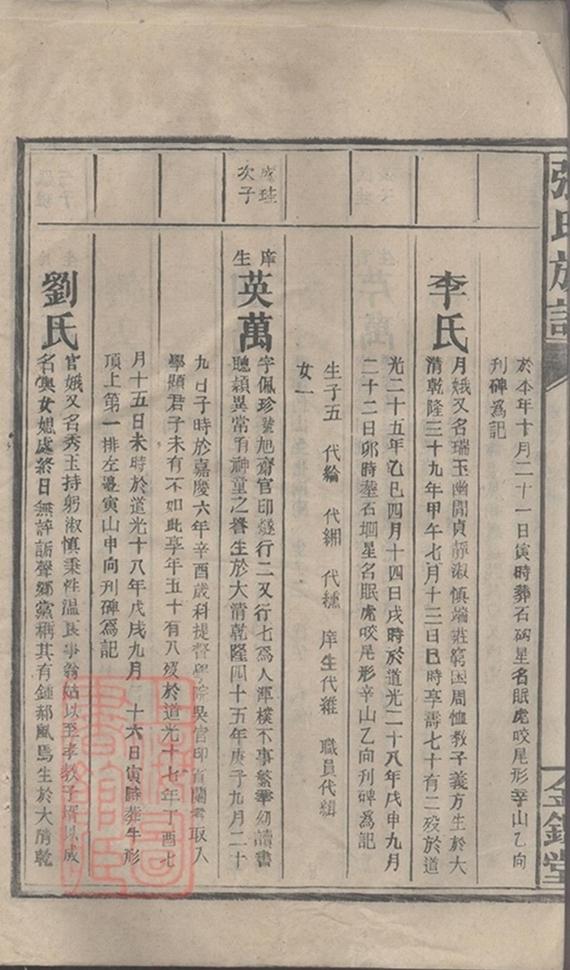 張氏族譜
金鑑堂
於本年十月二十一日寅時葬石硐星名眠虎咬尾形辛山乙向
刋碑為記
李氏
月娥又名瑞玉幽閒貞靜淑慎端莊窮困周恤教子義方生於大
清乾隆三十九年甲午七月十三日巳時享壽七十有二歿於道
光二十五年乙巳四月十四日戌時於道光二十八年戊申九月
二十二日卯時塟石堌星名眠虎咬尾形辛山乙向刊碑為記
生子五 代綸 代緗 代繐 庠生代維 職員代緝
女一
成珪
次子
庠
生
英萬
字佩珍號旭齋官印燧行二又行七為人渾樸不事繁華幼讀書
聰穎異常有神童之譽生於大清乾隆四十五年庚子九月二十
九日子時於嘉慶六年辛酉歲科提督學院吳官印省蘭考取入
學顯君子未有不如此享年五十有八歿於道光十七年丁酉七
月十五日未時於道光十八年戊戌九月 十六日寅時葬牛形
頂上第一排左邊寅山申向刊碑為記
劉氏
官娥又名秀玉持躬淑慎秉性溫良事翁姑以至孝教子壻以成
名與女嫂處終日無誶詬聲鄉黨稱其有鍾郝風焉生於大清乾